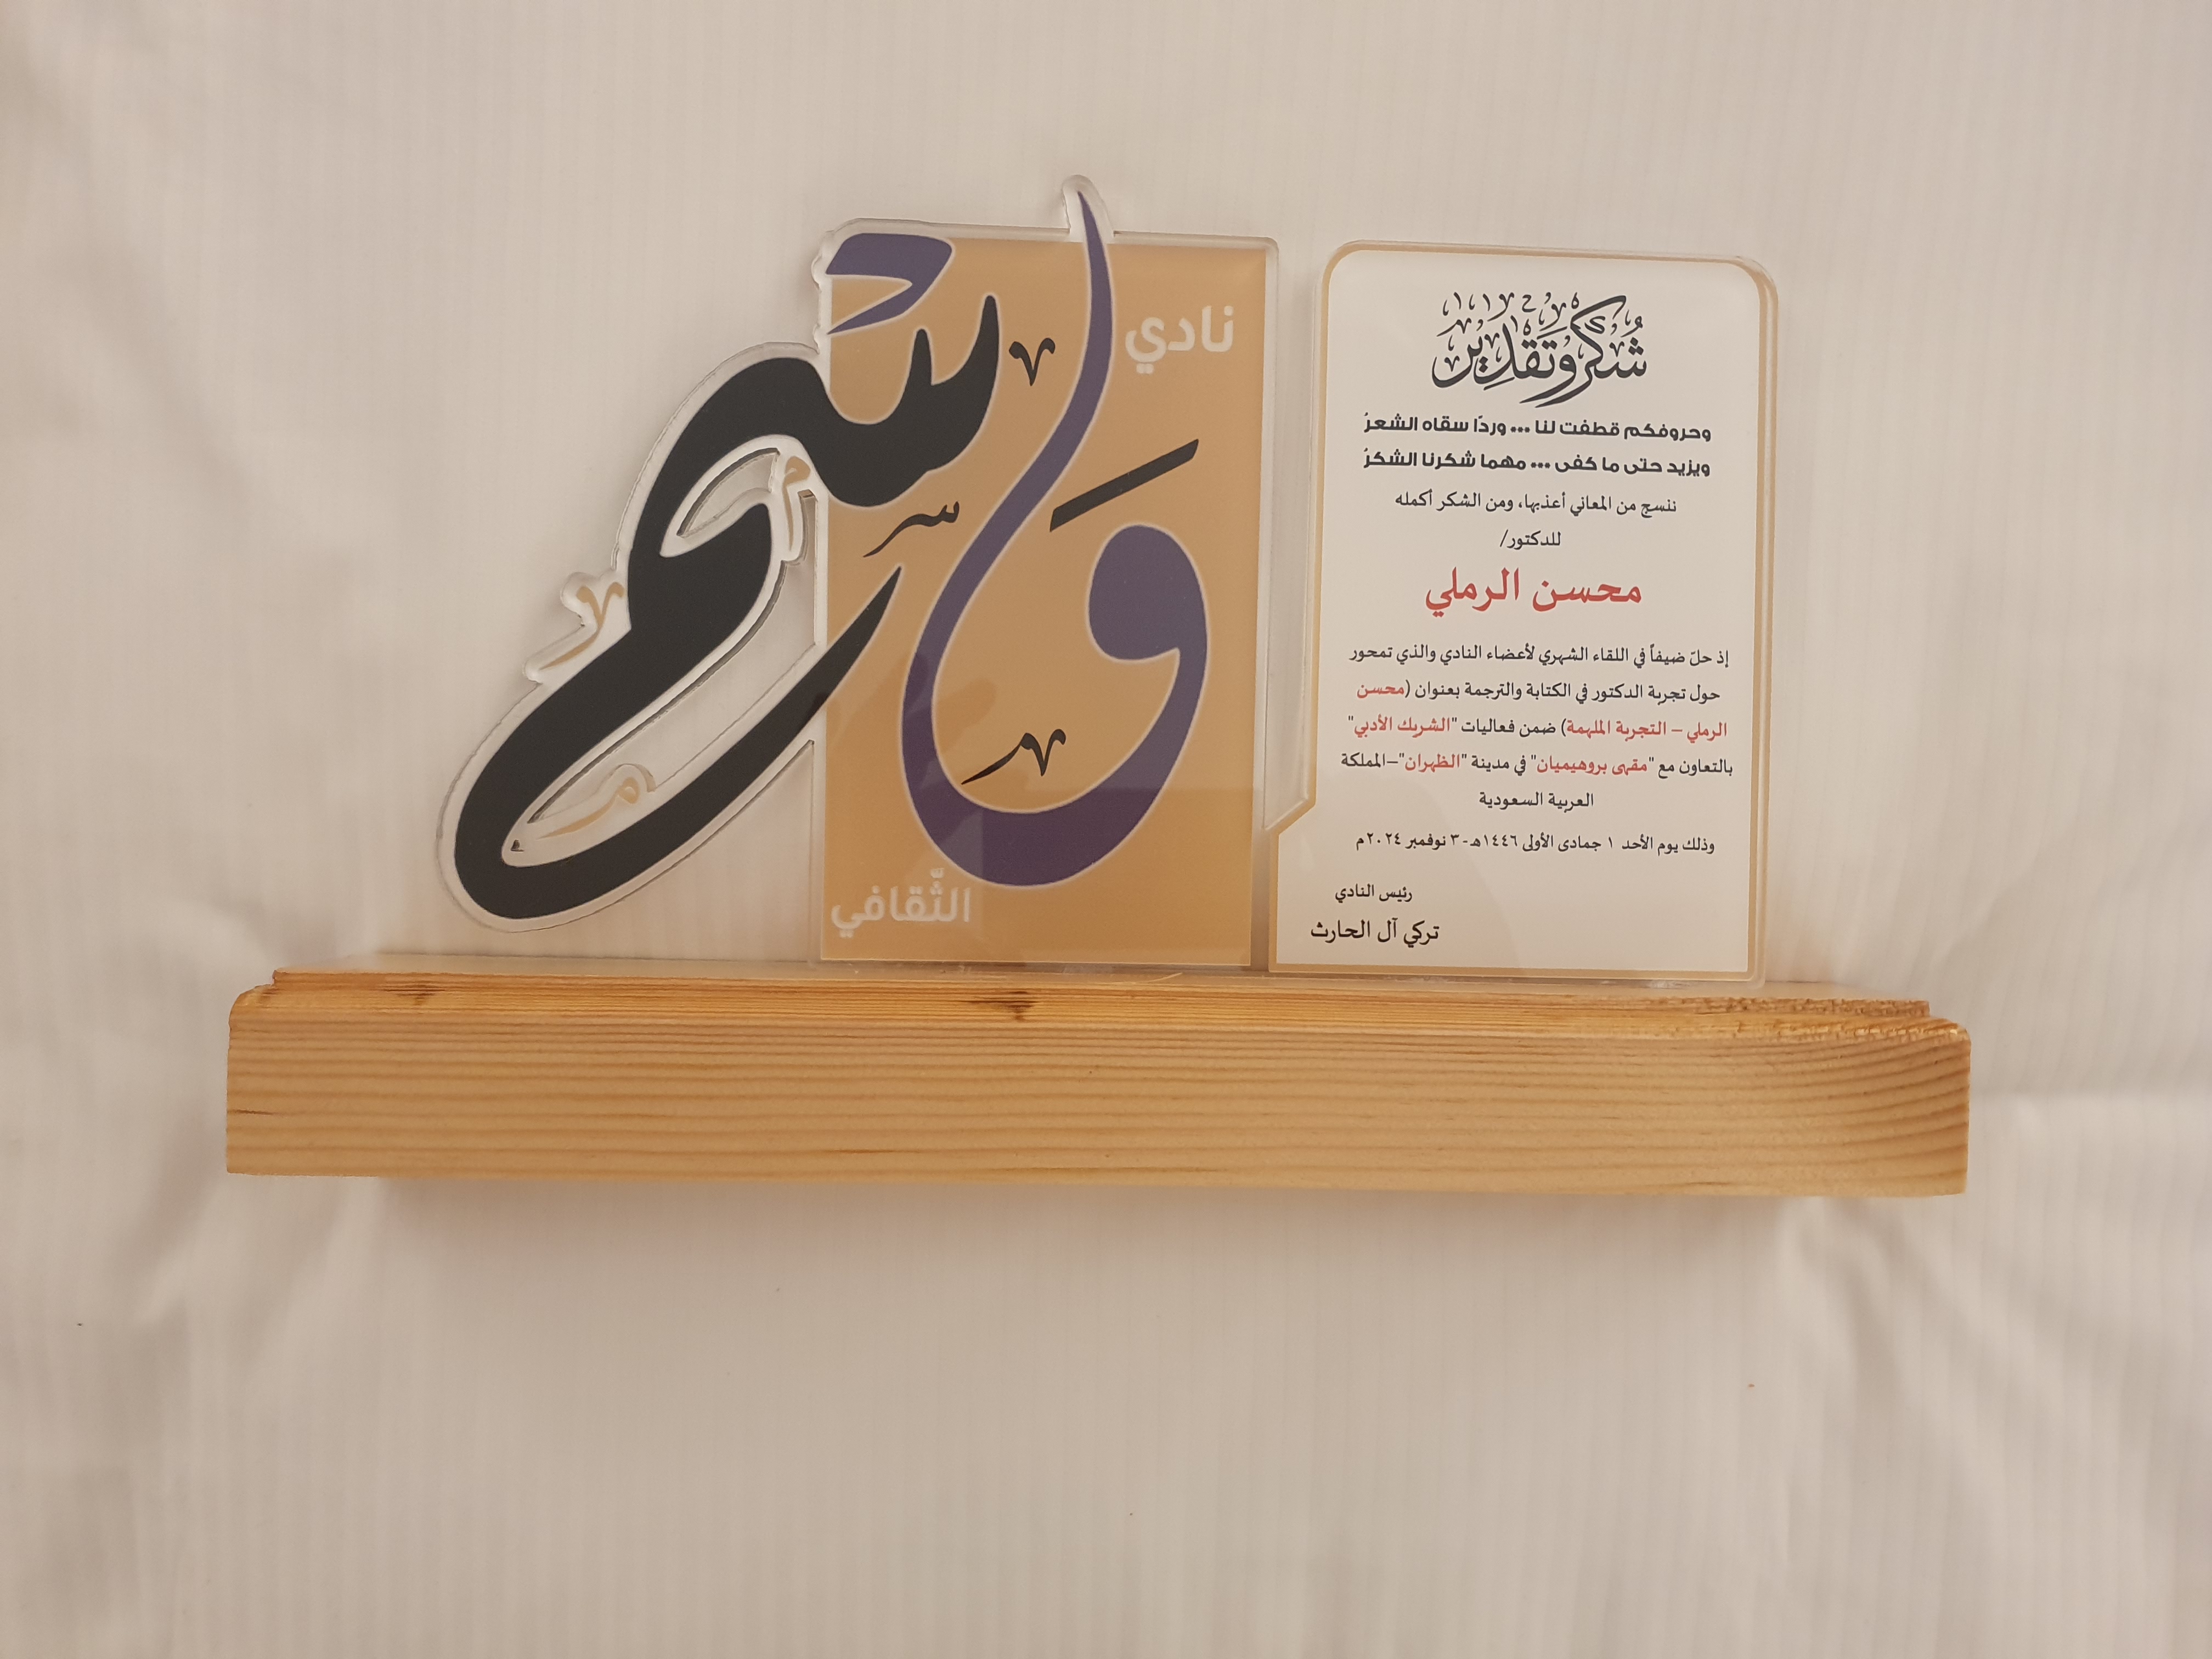 شُكْرٌ وَتَقْدِيْرٌ
وحروفكم قطفت لنا ... وردًا سقاه الشعرُ
ويزيد حتى ما كفى ... مهما شكرنا الشكرُ
ننسج من المعاني أعذبها، ومن الشكر أكمله
للدكتور/
محسن الرملي
إذ حلّ ضيفاً في اللقاء الشهري لأعضاء النادي والذي تمحور
حول تجربة الدكتور في الكتابة والترجمة بعنوان (محسن
الرملي – التجربة الملهمة) ضمن فعاليات "الشريك الأدبي"
بالتعاون مع "مقهى بروهيميان" في مدينة "الظهران"–المملكة
العربية السعودية
وذلك يوم الأحد ١ جمادى الأولى ١٤٤٦هـ - ٣ نوفمبر ٢٠٢٤م
رئيس النادي
تركي آل الحارث
نادي
وَسْم
الثّقافي